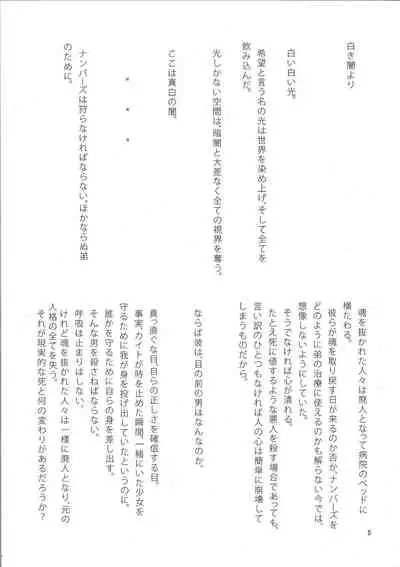 白き闇より
白い白い光。
希望と言う名の光は世界を染め上げ、そして全てを
飲み込んだ。
光しかない空間は、暗闇と大差なく全ての視界を奪う。
ここは真白の闇。
* * *
ナンバーズは狩らなければならない。ほかならぬ弟
のために。
魂を抜かれた人々は廃人となって病院のベッドに
横たわる。
彼らが魂を取り戻す日が来るのか否か、ナンバーズを
どのように弟の治療に使えるのかも解らない今では、
想像しないようにしていた。
そうでなければ心が潰れる。
たとえ死に値するような悪人を殺す場合であっても、
言い訳のひとつもなければ人の心は簡単に崩壊して
しまうものだから。
ならば彼は、目の前の男はなんなのか。
真っ直ぐな目。自らの正しさを確信する目。
事実、カイトが時を止めた瞬間、一緒にいた少女を
守るために我が身を投げ出していたというのに。
誰かを守るために自らの身を差し出す。
そんな男を殺さねばならない。
呼吸は止まりはしない。
けれど魂を抜かれた人々は一様に廃人となり、元の
人格の全てを失う。
それが現実的な死と何の変わりがあるだろうか？
5